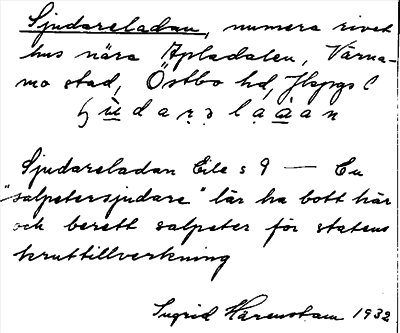 Sjudareladan, numera rivet
hus nära Apladalen, Värna-
mo stad, Östbo hd, Jkpgs l
Sjudareladan Eile s 9 — En
"salpetersjudare" lär ha bott här
och berett salpeter för statens
kruttillverkning
Ingrid Harenstam 1932